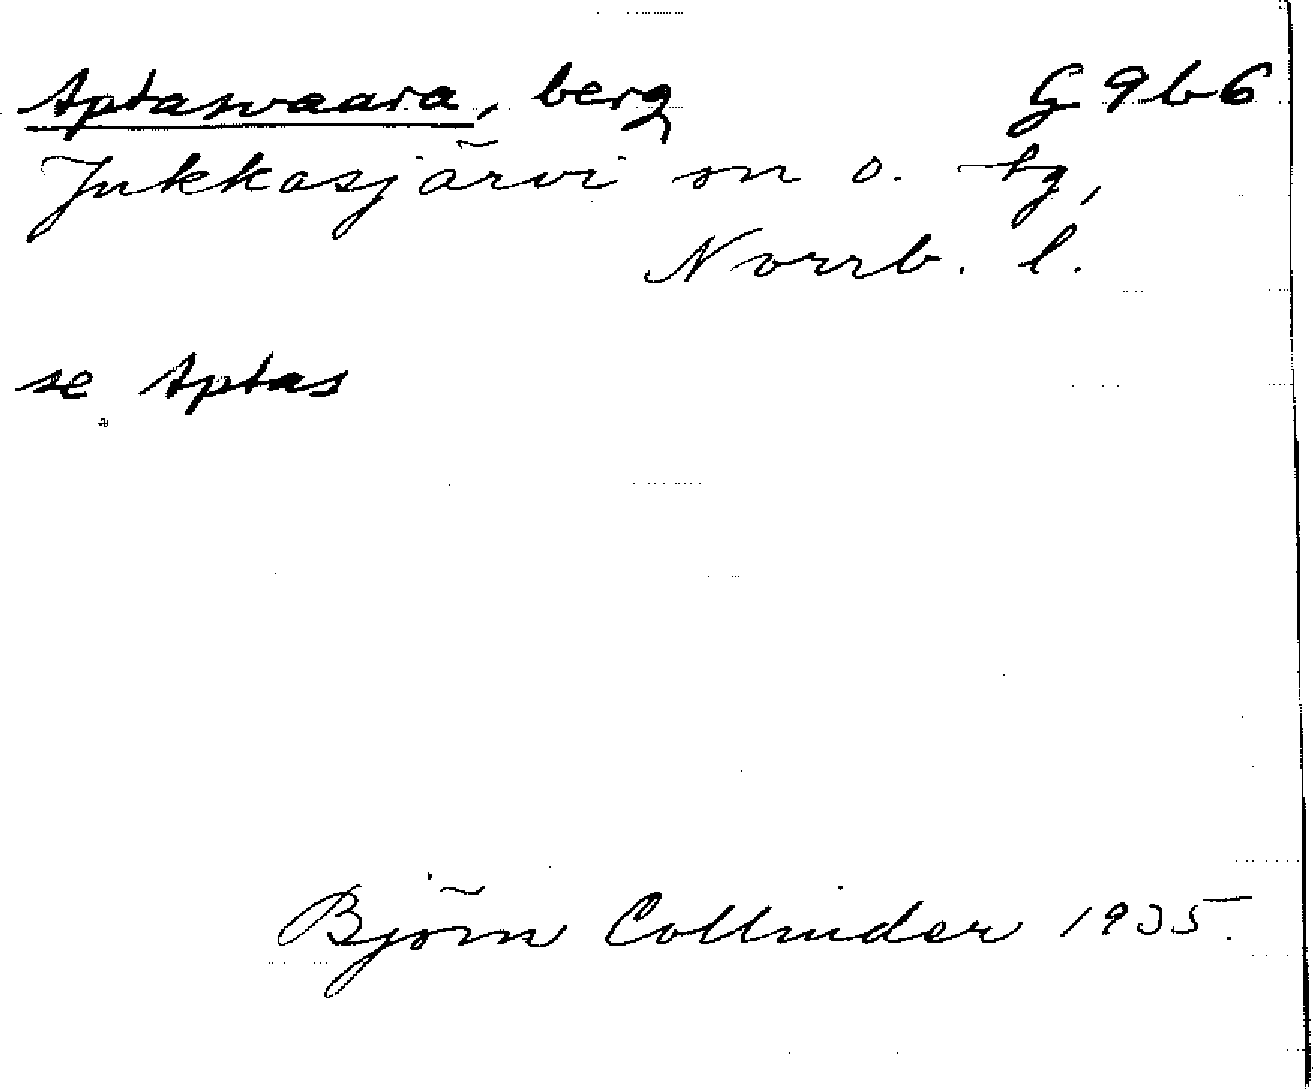 Aptasvaara, berg G 9 b 6
Jukkasjärvi sn o. tg,
Norrb. l.
se Aptas
Björn Collinder 1935.